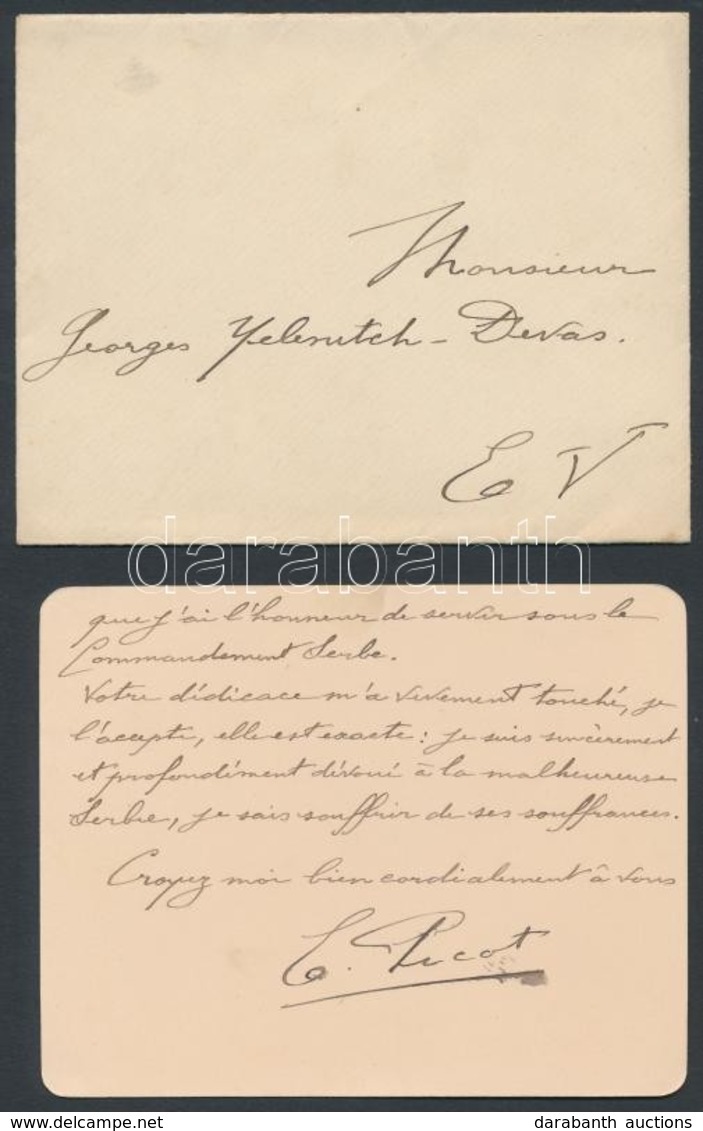 Monsieur
Georges Yelenitch - Devas.
E V
darabanth
que j'ai l'honneur de servir sous le
Commandement Serbe.
Votre dédicace m'a vivement touché, je
l'accepte, elle est exacte : je suis sincèrement
et profondément dévoué à la malheureuse
Serbie, je sais souffrir de ses souffrances.
Croyez moi bien cordialement à vous
E. Picot
darabanth auctions